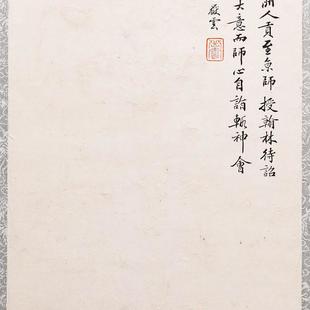 洲人貢至京師授翰林待詔
大意而師心自詣輒神會